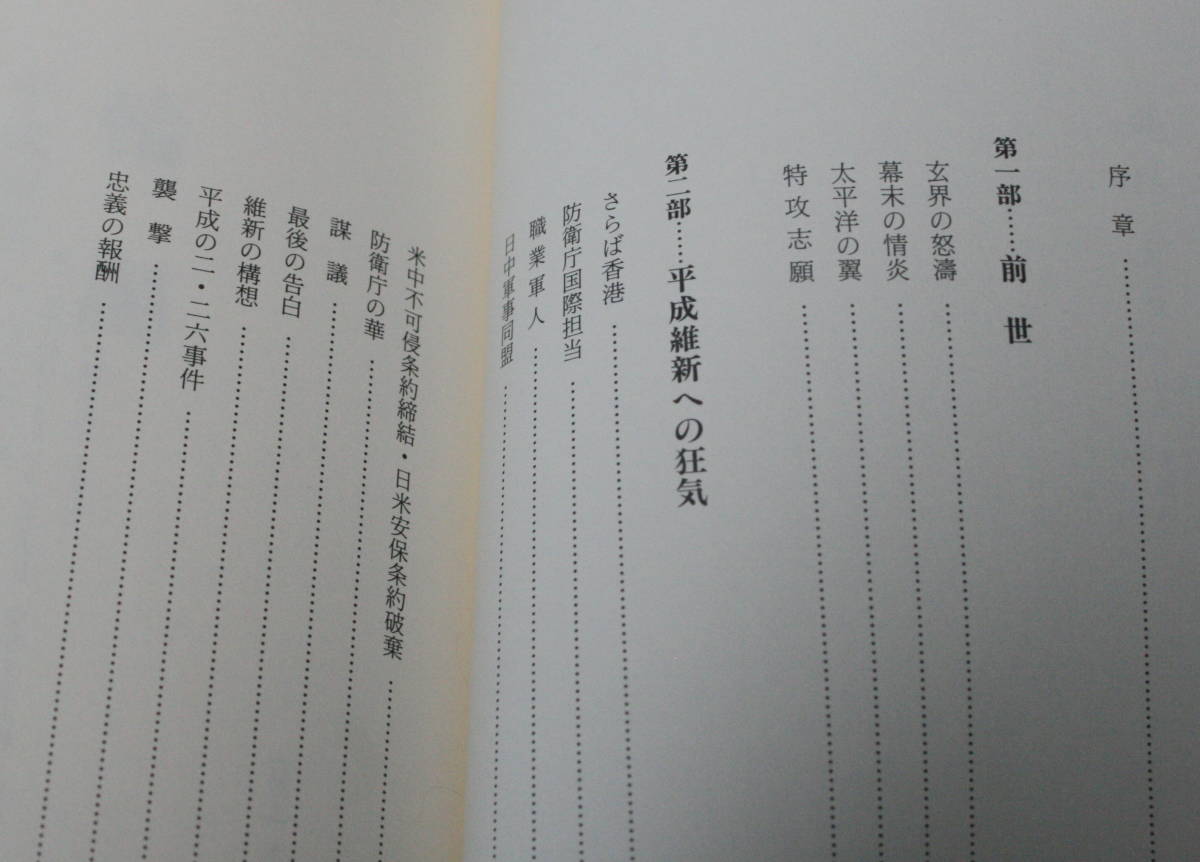 序章
第一部……前世
玄界の怒濤
幕末の情炎
太平洋の翼
特攻志願
第二部……平成維新への狂気
さらば香港
防衛庁国際担当
職業軍人
日中軍事同盟
米中不可侵条約締結・日米安保条約破棄
防衛庁の華
謀議
最後の告白
維新の構想
平成の二・二六事件
襲撃
忠義の報酬